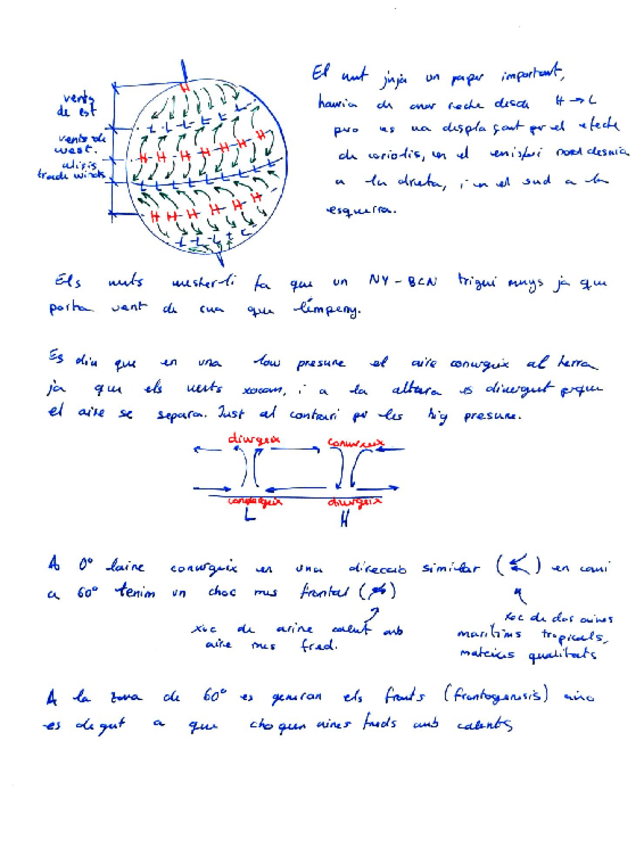 vents
de est
vents de
west.
alisis
trade winds
H
L L L L
H H H H H H
L L L L L L L
H H H H H H
L L L L L
El vent juja un paper important,
hauria de anar recte desde H → L
pero es va desplaçant per el efecte
de coriolis, en el emisferi nord desvia
a la dreta, i en el sud a la
esquerra.
Els vents westerli fa que un NY - BCN trigui menys ja que
porta vent de cua que l'empeny.
Es diu que en una low presure el aire convergeix al terra
ja que els vents xocan, i a la altura es divergent perque
el aire se separa. Just al contrari per les hig presure.
divergeix convergeix
convergeix divergeix
L H
A 0° l'aire convergeix en una direccio similar ( ) en canvi
a 60° tenim un choc mes frontal ( )
xoc de aire calent amb
aire mes fred.
xoc de dos aires
maritims tropicals,
mateixes qualitats
A la zona de 60° es generan els fronts (frontogenesis) aixo
es degut a que choquen aires freds amb calents